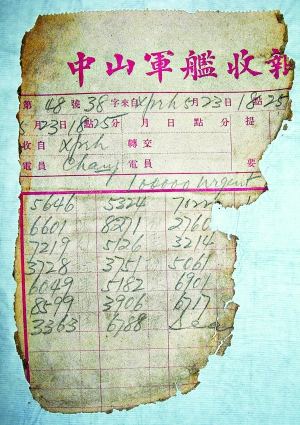 中山軍艦收報
第 48 號 38 字來自 Xprh 5月 23 日 18 點 25
5 月 23 日 18 25 分 月 日 點 分 提
收自 Xprh 轉交
電員 Chang 電員 要
Urgent
5646 5324
6601 8271 2760
7219 5126 3214
3728 3751 5061
6049 5182 6901
8599 3906 6717
3363 6788